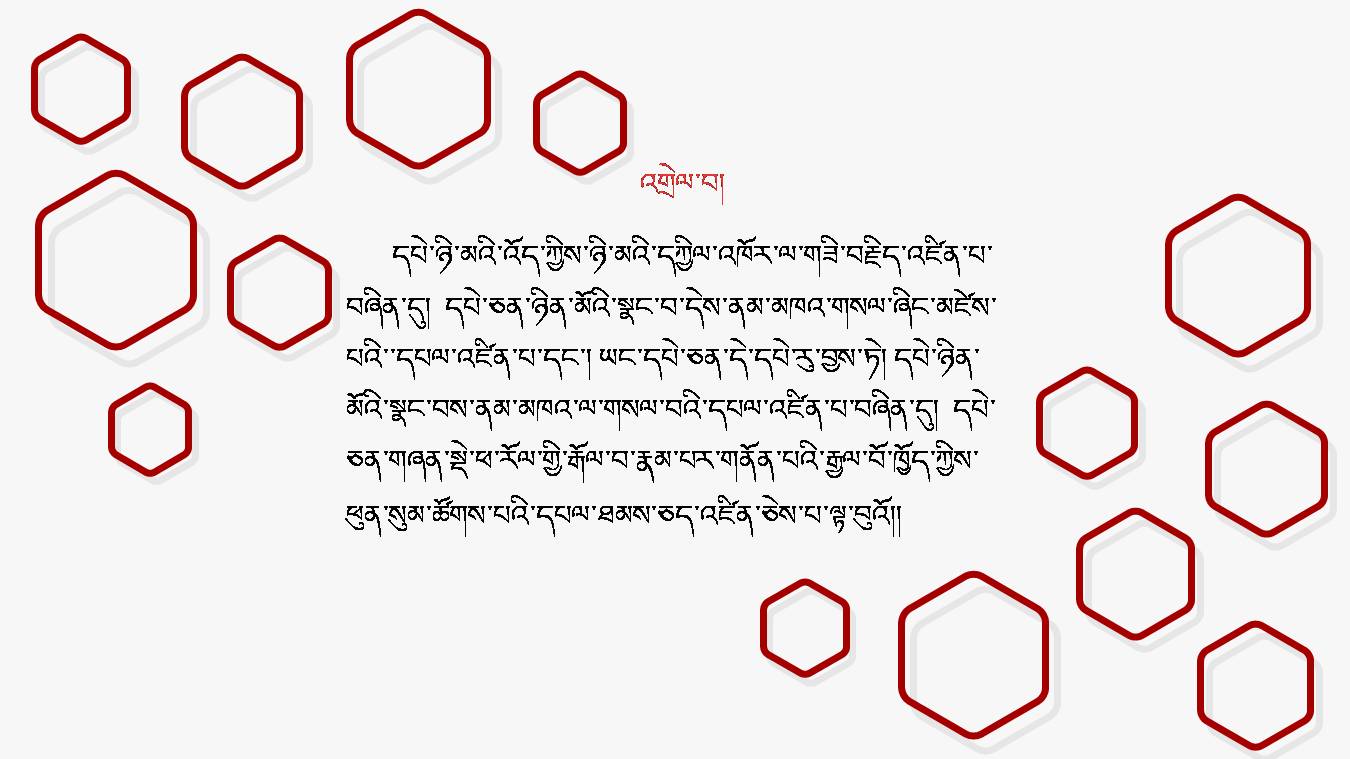 འགྲེལ་བ།
དཔེ་ཉི་མའི་འོད་ཀྱིས་ཉི་མའི་དཀྱིལ་འཁོར་ལ་གཟི་བརྗིད་འཛིན་པ་
བཞིན་དུ། དཔེ་ཅན་ཉིན་མོའི་སྣང་བ་དེས་ནམ་མཁའ་གསལ་ཞིང་མཛེས་
པའི་་དཔལ་འཛིན་པ་དང་། ཡང་དཔེ་ཅན་དེ་དཔེ་རུ་བྱས་ཏེ། དཔེ་ཉིན་
མོའི་སྣང་བས་ནམ་མཁའ་ལ་གསལ་བའི་དཔལ་འཛིན་པ་བཞིན་དུ། དཔེ་
ཅན་གཞན་སྡེ་ཕ་རོལ་གྱི་རྒོལ་བ་རྣམ་པར་གནོན་པའི་རྒྱལ་པོ་ཁྱོད་ཀྱིས་
ཕུན་སུམ་ཚོགས་པའི་དཔལ་ཐམས་ཅད་འཛིན་ཅེས་པ་ལྟ་བུའོ།།